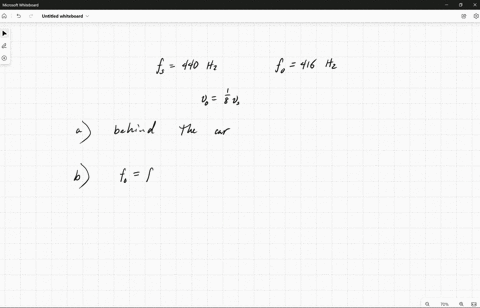 Microsoft Whiteboard
Untitled whiteboard
f_s = 440 Hz f_o = 416 Hz
v_o = 1/8 v_s
a) behind the car
b) f_o = f
70%